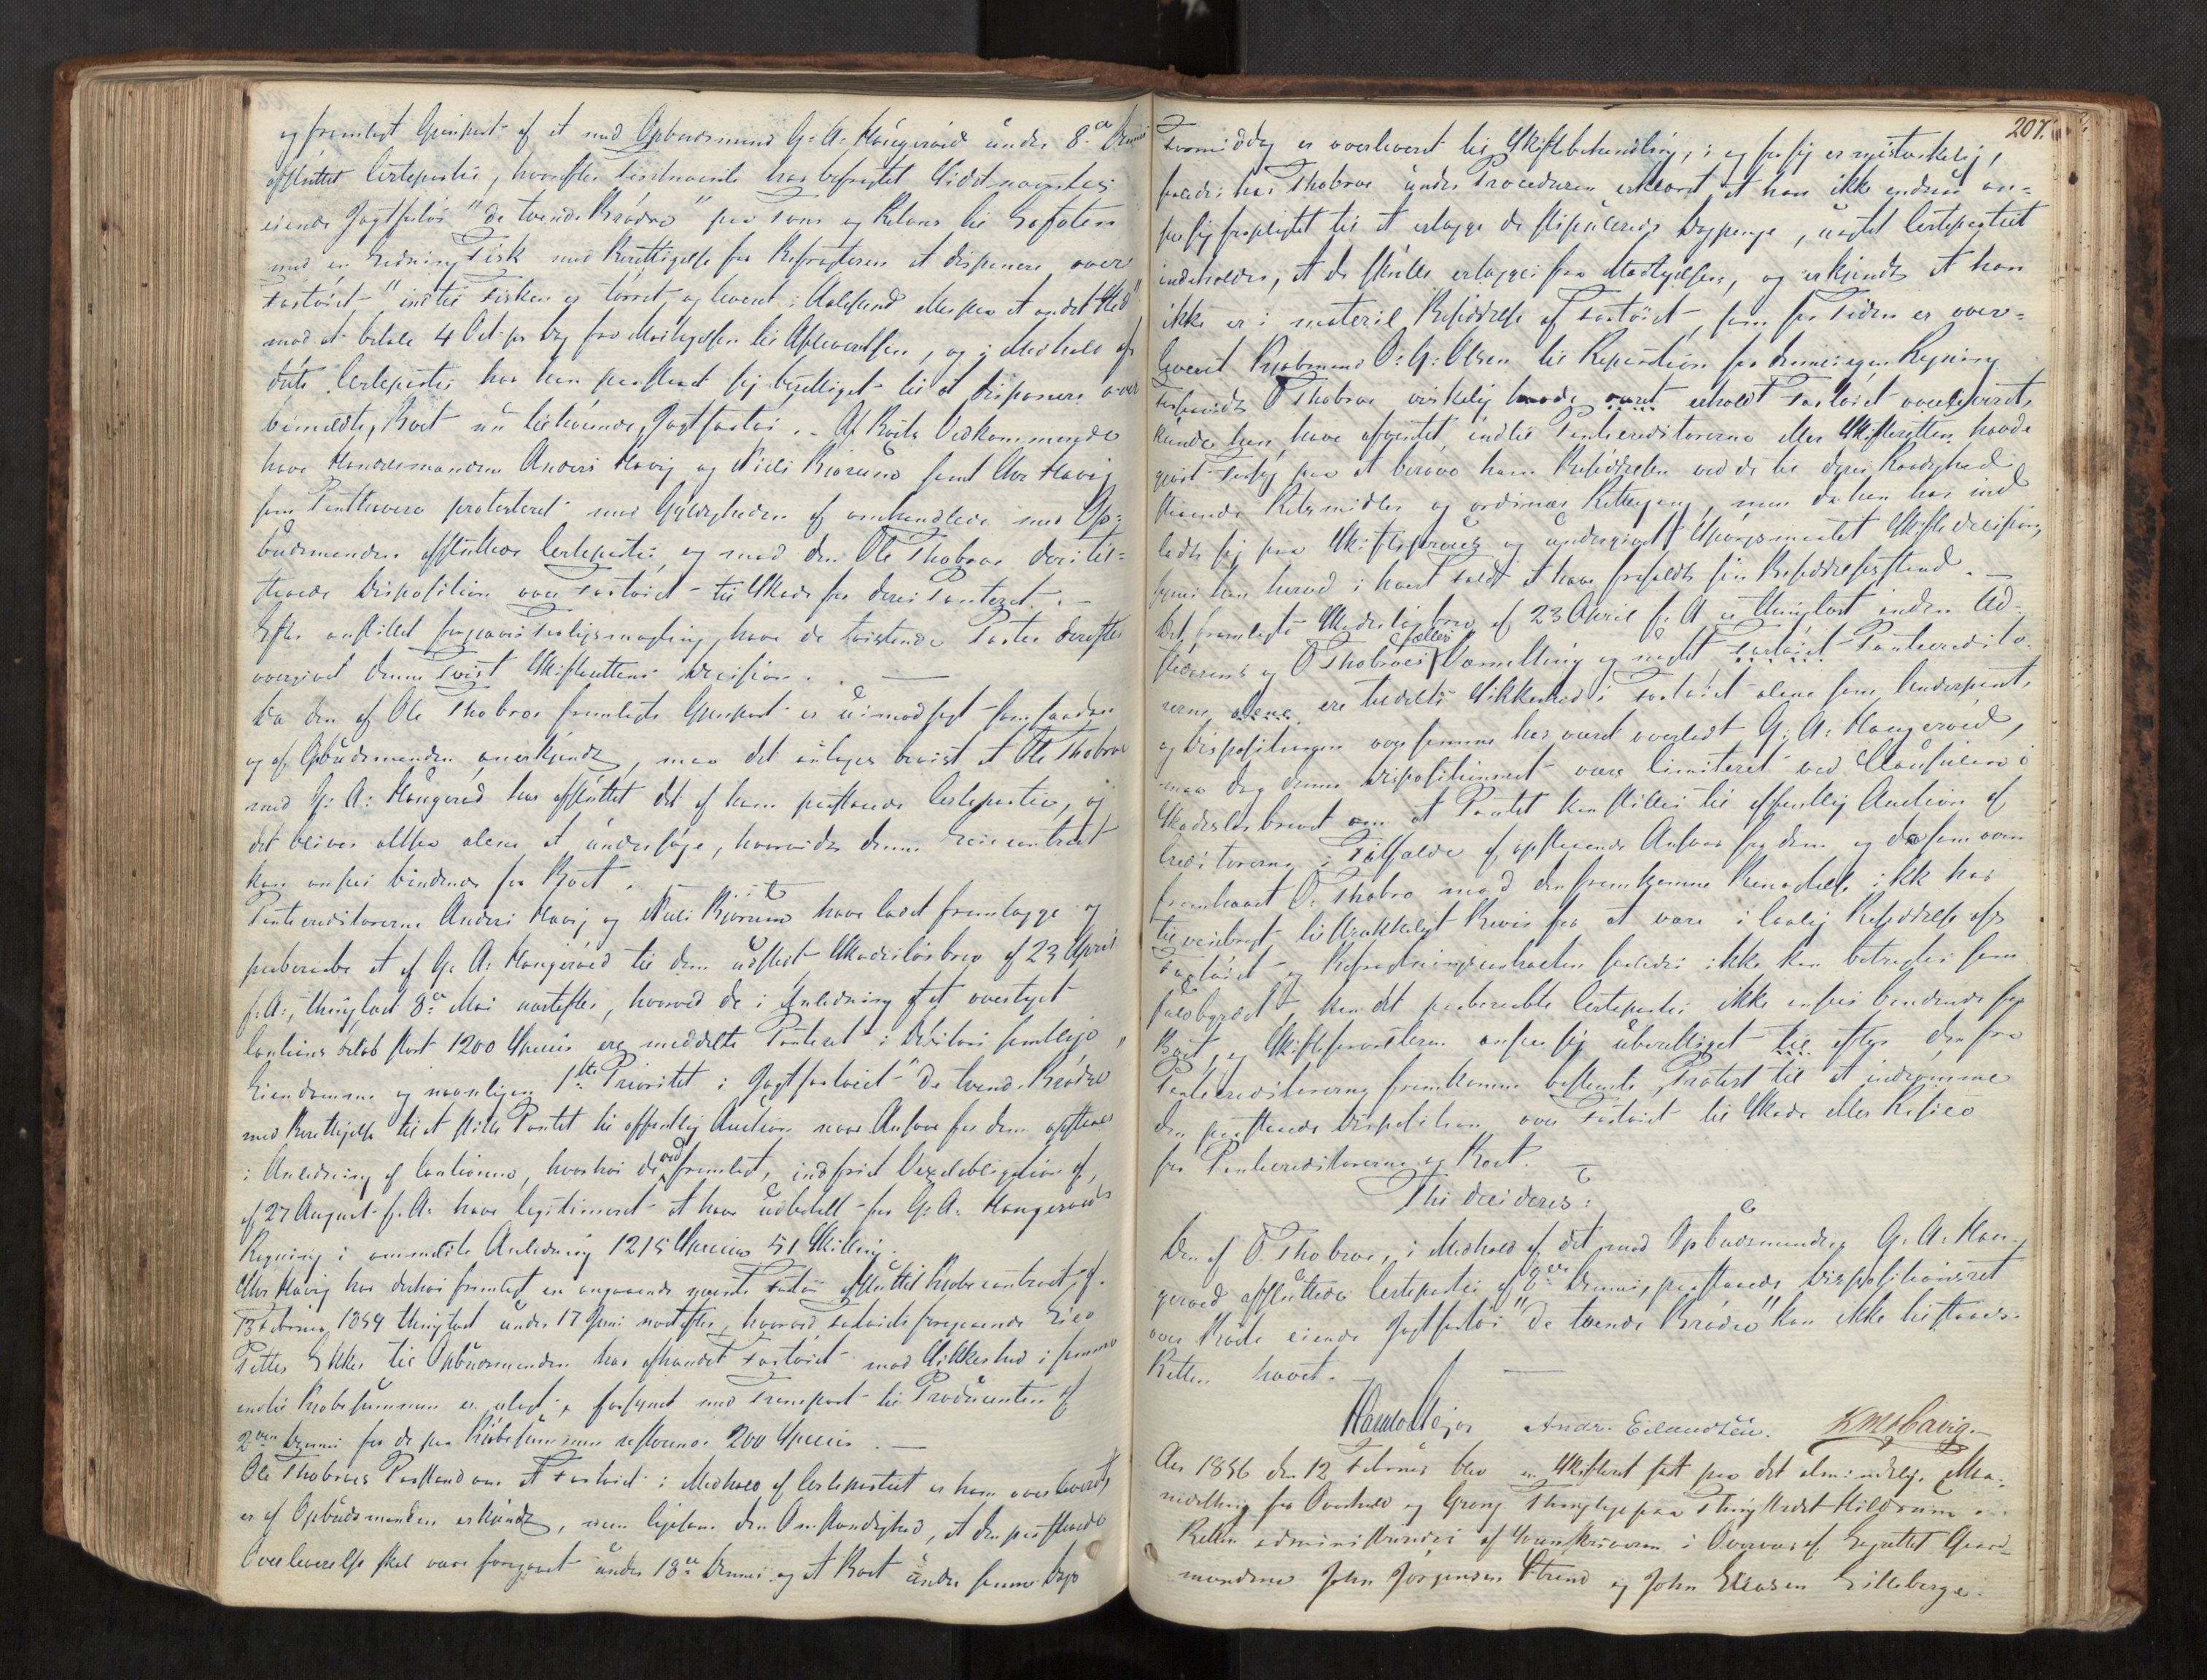 og fremlagt Gjenpart af et med Opbudsmand G. A. Haugeröed under 8de Dennes
afsluttet Certepartie, hvorefter bemeldte har befragtet Sidstnævntes
eiende Jagtfartöi "de tvende Brödre" paa Toms og Retour til Lofoten
med en Ladning Fisk med Berettigelse for Befragteren at disponere over
Fartöiet "indtil Fisken er törret og leveret i Aalesund eller paa et andet Sted"
mod at betale 4 Ort pr Dag fra Modtagelsen til Afleverelsen, og i Medhold af
dette Certepartie har han paastaaet sig berettiget til at disponere over
bemeldte, Boet nu tilhörende Jagtfartöi. - Af Boets Vedkommende
have Handelsmændene Anders Havig og Niels Bjørum samt Chr Havig
som Panthavere protesteret mod Gyldigheden af omhandlede med Op-
budsmanden afsluttede Certepartie, og mod den Ole Thobroe deri til-
staaede Disposition over Fartöiet til Skade for deres Panteret. -
Efter anstillet forgjæves Forligsmægling, have de tvistende Parter derefter
overgivet denne Tvist Skifterettens Decision. -
Da den af Ole Thobroe fremlagte Gjenpart er uimodsagt som saadan
og af Opbudsmanden anerkjendt, maa det antages bevist at Ole Thobroe
med G. A. Haugeröed har afsluttet det af ham paastaaede Certepartie, og
det bliver altsaa alene at undersöge, hvorvidt denne Leiecontract
kan ansees bindende for Boet.
Pantecreditorerne Anders Havig og Niels Bjørum have ladet fremlægge og
paaberaabe et af G. A. Haugeröed til dem udstedt Skadeslösbrev af 23 April
f. A., thinglæst 3de Mai næstefter, hvorved de i Anledning af et overtaget
Cautions Beløb stort 1200 Species ere meddelte Panteret i Debitors samtlige
Eiendomme og navnligen 1ste Prioritet i Jagtfartöiet "De tvende Brödre"
med Berettigelse til at stille Pantet til offentlig Auction naar Ansvar for dem opstaaer
i Anledning af Cautionen, hvorhos de ved fremlagt, indfriet Vexelobligation af,
af 27 August f. A. have legitimeret at have udbetalt for G. A. Haugeröeds
Regning i ommeldte Anledning 1215 Species 51 Skilling.
Chr Havig har derhos fremlagt en angaaende nævnte Fartöi afsluttet Kjöbecontract af
13 Februar 1854 thinglæst under 17 Juni næstefter, hvorved Fartöiets foregaaende Eier
Petter Ekker til Opbudsmanden har afhændet Fartöiet mod Sikkerhed i samme
indtil Kjøbesummen er erlagt, forsynet med Transport til Producenten af
2den Dennes for de paa Kjöbesummen resterende 200 Species. -
Ole Thobroes Paastand om at Fartöiet i Medhold af Certepartiet er ham overleveret
er af Opbudsmanden erkjendt, men ligesom den Omstændighed, at den paastaaede
Overleverelse skal være foregaaet under 18de Dennes og at Boet under samme Dags
207.
Formiddag er overleveret til Skiftebehandling, i og for sig er mistænkelig,
saaledes har Thobroe under Proceduren erklæret at han ikke endnu an-
saa sig forpligtet til at erlægge de stipulerede Dagpenge, uagtet Certepartiet
indeholder, at de skulle erlægges fra Modtagelsen, og erkjendt at han
ikke er i materiel Besiddelse af Fartöiet, som for Tiden er over-
leveret Kjøbmand O. G. Olsen til Reparation for dennes egen Regning
Forsaavidt O Thobroe virkelig havde været erholdt Fartöiet overleveret,
kunde han have afventet indtil Pantecreditorerne eller Skifteretten havde
gjort Forsög paa at beröve ham Besiddelsen ved de til deres Raadighed
staaende Retsmidler og ordinær Rettergang, men da han har ind-
ladt sig paa Skifteprocedure og undergivet Spörgsmaalet Skiftedecision,
synes han herved i hvert Fald at have frafaldt sin Besiddelsesstand. -
Det fremlagte Skadeslösbrev af 23 April f. A. er thinglæst inden Ud-
stederens og O Thobroes fælles Værnething og uagtet Fartöiet Pantecredito-
rerne alene ere tildelte Sikkerhed i Fartöiet alene som Underpant,
og Dispositionen over samme har været overladt G. A. Haugeröed,
maa dog denne Dispositionsret være limiteret ved Clausulen i
Skadeslösbrevet om at Pantet kan stilles til offentlig Auction af
Creditorerne i Tilfælde af opstaaende Ansvar for dem og da som oven
fremhævet O. Thobro mod den fremkomne Benægtelse ikke har
tilveiebragt tilstrækkeligt Beviis for at være i lovlig Besiddelse af
Fartöiet og Befragtningscontracten saaledes ikke kan betragtes som
fuldbyrdet, kan det paaberaabte Certepartie ikke ansees bindende for
Boet, og Skifteforvalteren anseer sig uberettiget til efter den fra
Pantecreditorerne fremkomne bestemte Protest til at indrømme
den paastaaede Disposition over Fartöiet til Skade eller Risico
for Pantecreditorerne og Boet. -
Thi decideres:
Den af O. Thobroe, i Medhold af det med Opbudsmanden G. A. Hau-
geröed afsluttede Certepartie af 8de Dennes, paastaaede Dispositionsret
over Boets eiende Jagtfartöi "De tvende Brödre" kan ikke tilstaaes.
Retten hævet. -
Andr. Erlandsen. K M Havig
Aar 1856 den 12 Februar blev en Skifteret sat paa det almindelige Ma-
nedthing for Overhald og Grong Thinglauge paa Thingstedet Hildrum.
Retten administreredes af Sorenskriveren i Overvær af Laugrettet Gaard-
mændene John Jörgensen Strand og John Eliasen Lilleberge.